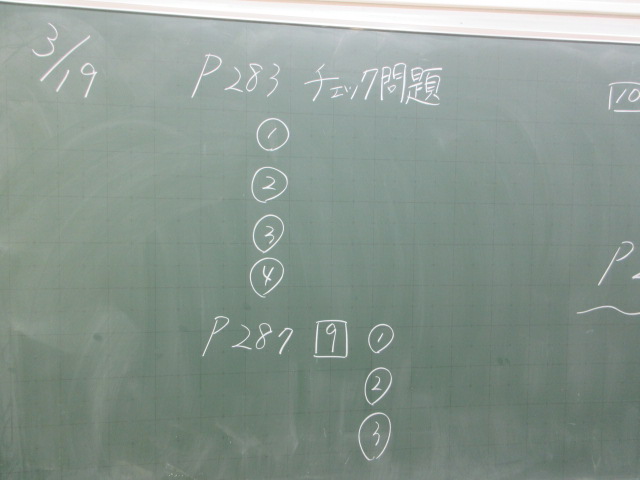 3/19
P283 チェック問題
①
②
③
④
P287 9 ①
②
③
10
P2